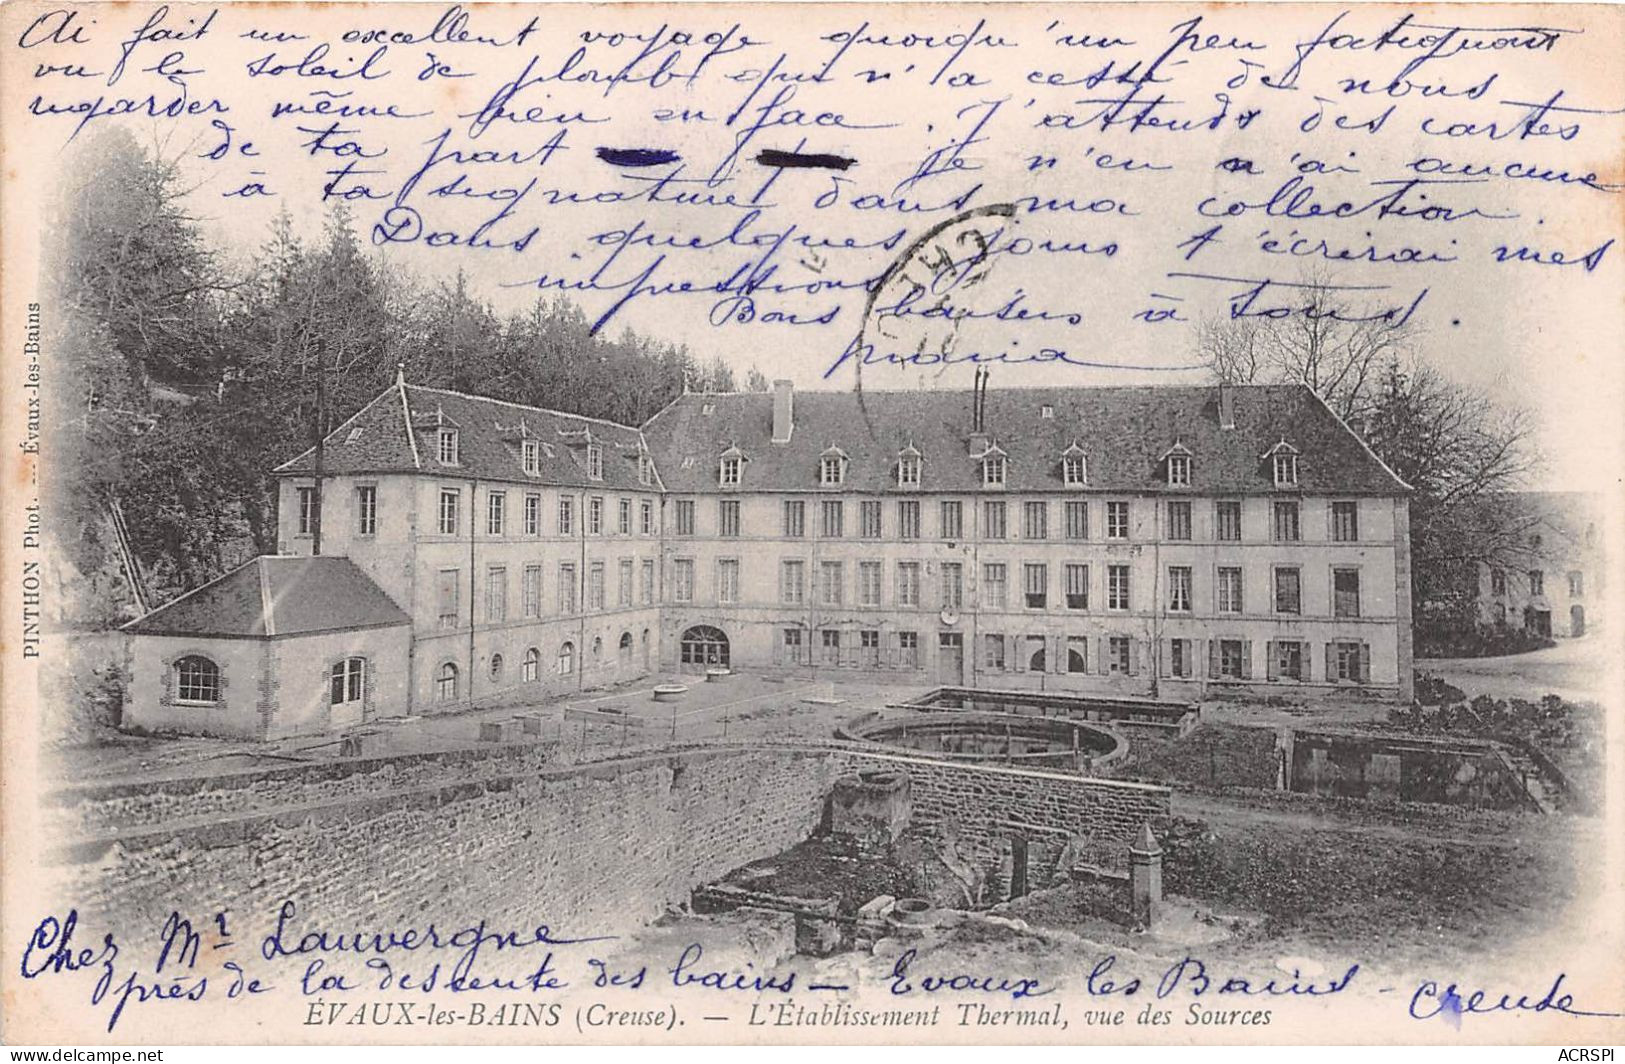 Ai fait un excellent voyage quoiqu'un peu fatiguant
vu le soleil de plomb qui n'a cessé de nous
regarder même bien en face. J'attends des cartes
de ta part je n'en n'ai aucune
à ta signature dans ma collection.
Dans quelques jours t'écrirai mes
impressions
Bons baisers à tous.
maria
PINTHON Phot. --- Évaux-les-Bains
Chez Mr Lauvergne
près de la descente des bains — Evaux les Bains - Creuse
ÉVAUX-les-BAINS (Creuse). — L'Établissement Thermal, vue des Sources
delcampe.net
ACRSPI